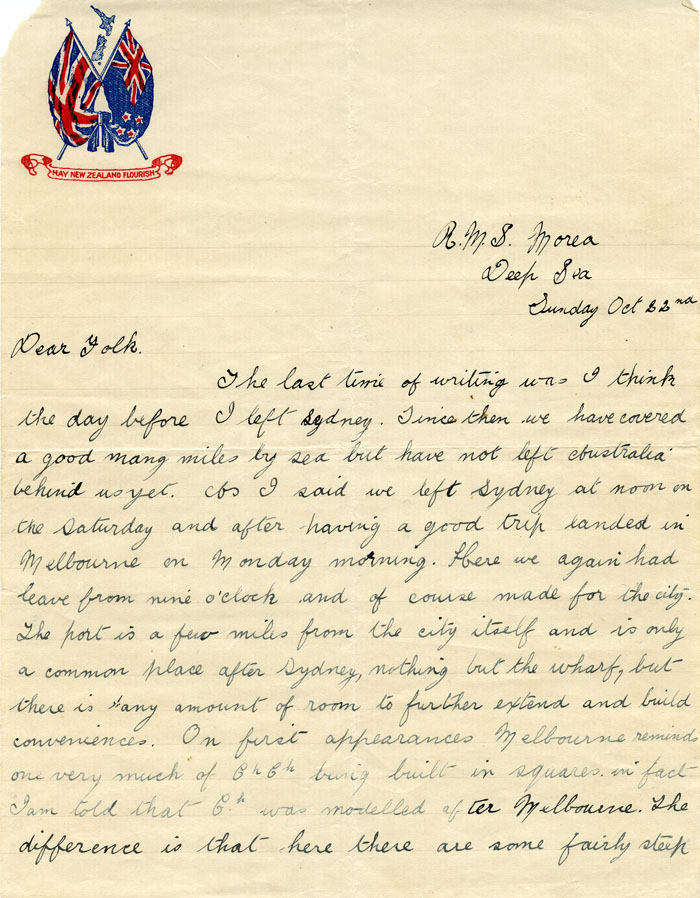 MAY NEW ZEALAND FLOURISH
R.M.S. Morea
Deep Sea
Sunday Oct 22nd
Dear Folk.
The last time of writing was I think
the day before I left Sydney. Since then we have covered
a good many miles by sea but have not left Australia
behind us yet. As I said we left Sydney at noon on
the Saturday and after having a good trip landed in
Melbourne on Monday morning. Here we again had
leave from nine o'clock and of course made for the city.
The port is a few miles from the city itself and is only
a common place after Sydney, nothing but the wharf, but
there is any amount of room to further extend and build
conveniences. On first appearances Melbourne reminds
one very much of Ch Ch being built in squares. in fact
I am told that C.h was modelled after Melbourne. The
difference is that here there are some fairly steep